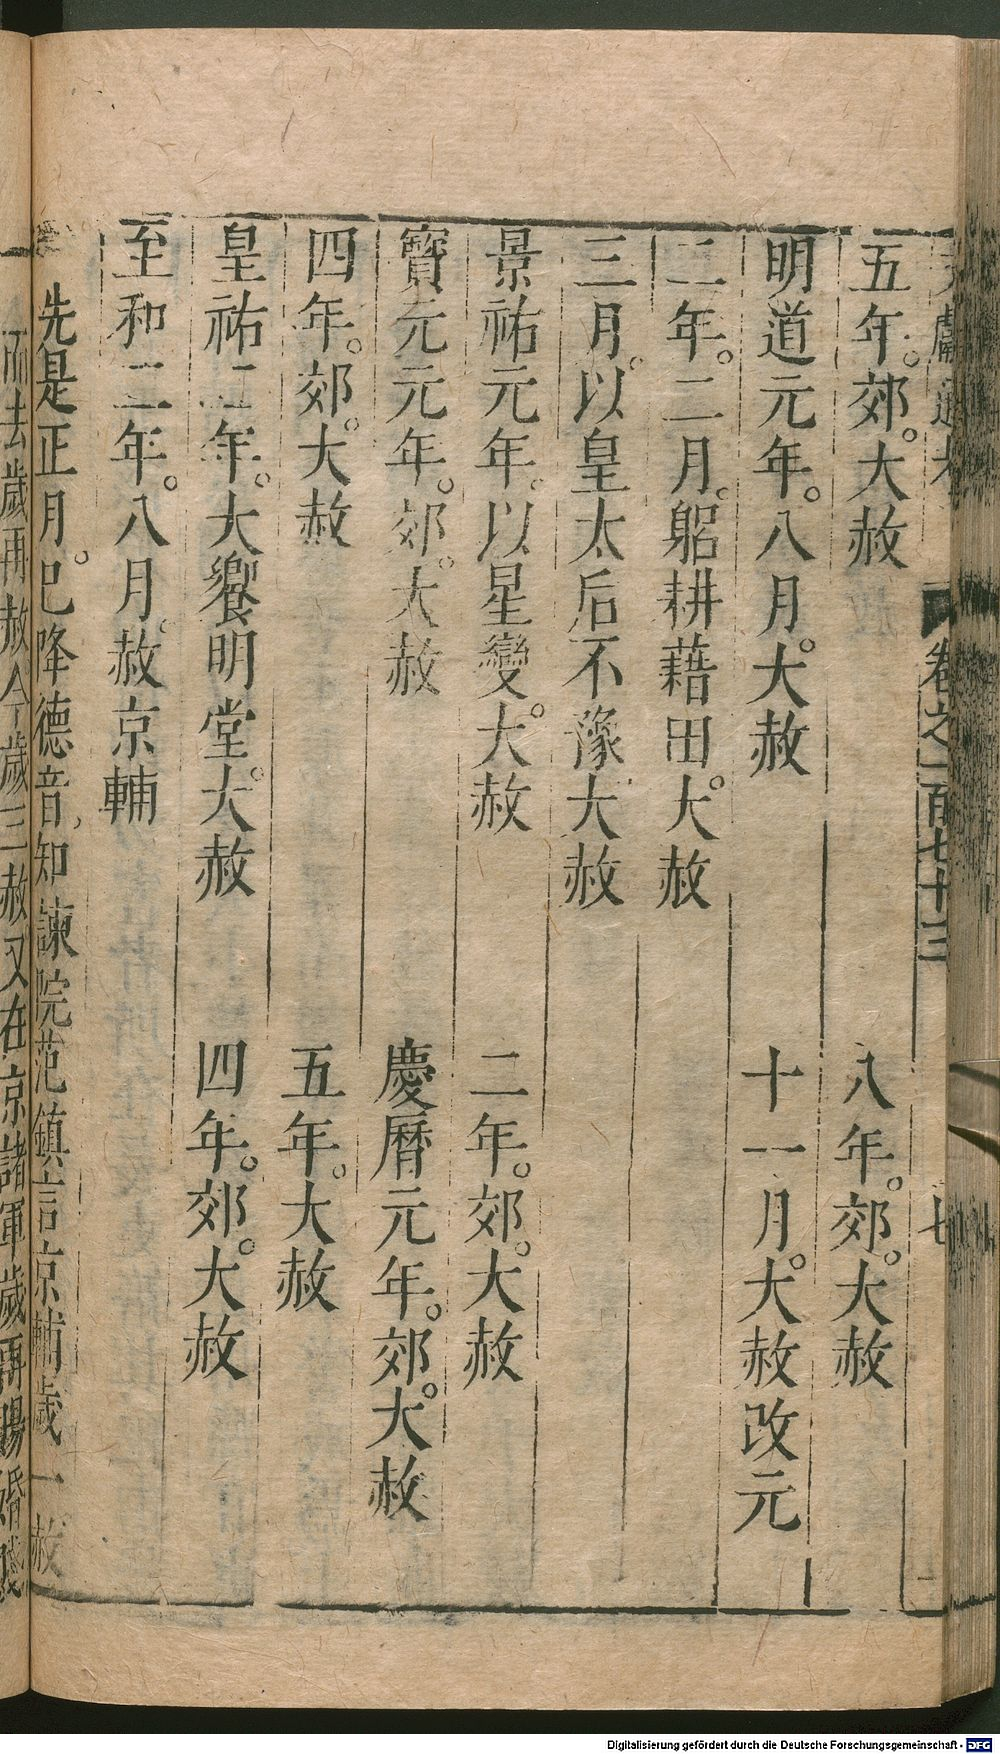 文獻通考 卷之一百七十三 七
五年。郊。大赦 八年。郊。大赦
明道元年。八月。大赦 十一月。大赦改元
二年。二月。躬耕藉田。大赦
三月。以皇太后不豫大赦
景祐元年。以星變。大赦 二年。郊。大赦
寶元元年。郊。大赦 慶曆元年。郊。大赦
四年。郊。大赦 五年。大赦
皇祐二年。大饗明堂。大赦 四年。郊。大赦
至和二年。八月。赦京輔
先是正月。已降德音。知諫院范鎮言京輔歲一赦
而去歲再赦今歲三赦又在京諸軍歲再賜緡錢
Digitalisierung gefördert durch die Deutsche Forschungsgemeinschaft - DFG